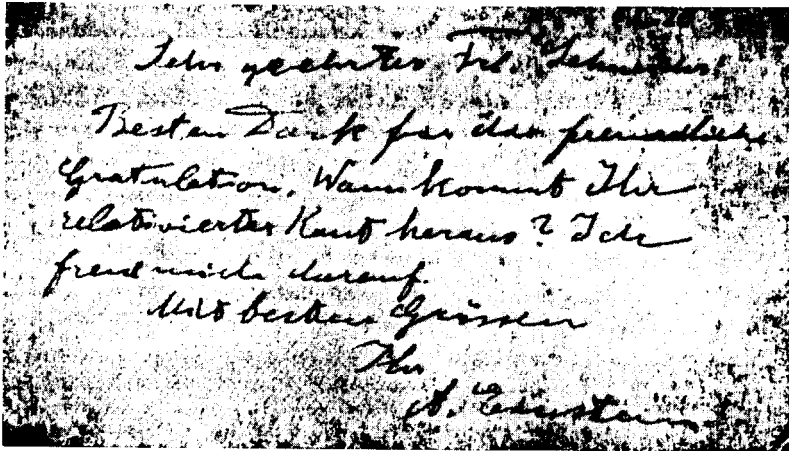 Sehr geehrter Frl. Schneider!
Besten Dank für die freundliche
Gratulation. Wann kommt Ihr
relativierter Kant heraus? Ich
freue mich darauf.
Mit besten Grüssen
Ihr
A. Einstein